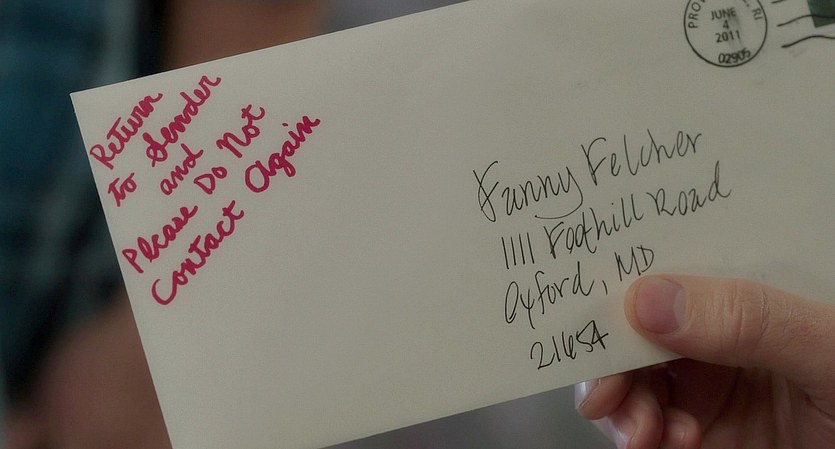 Return
to Sender
and
Please Do Not
Contact Again
Fanny Felcher
1111 Foothill Road
Oxford, MD
21654
JUNE
4
2011
02905